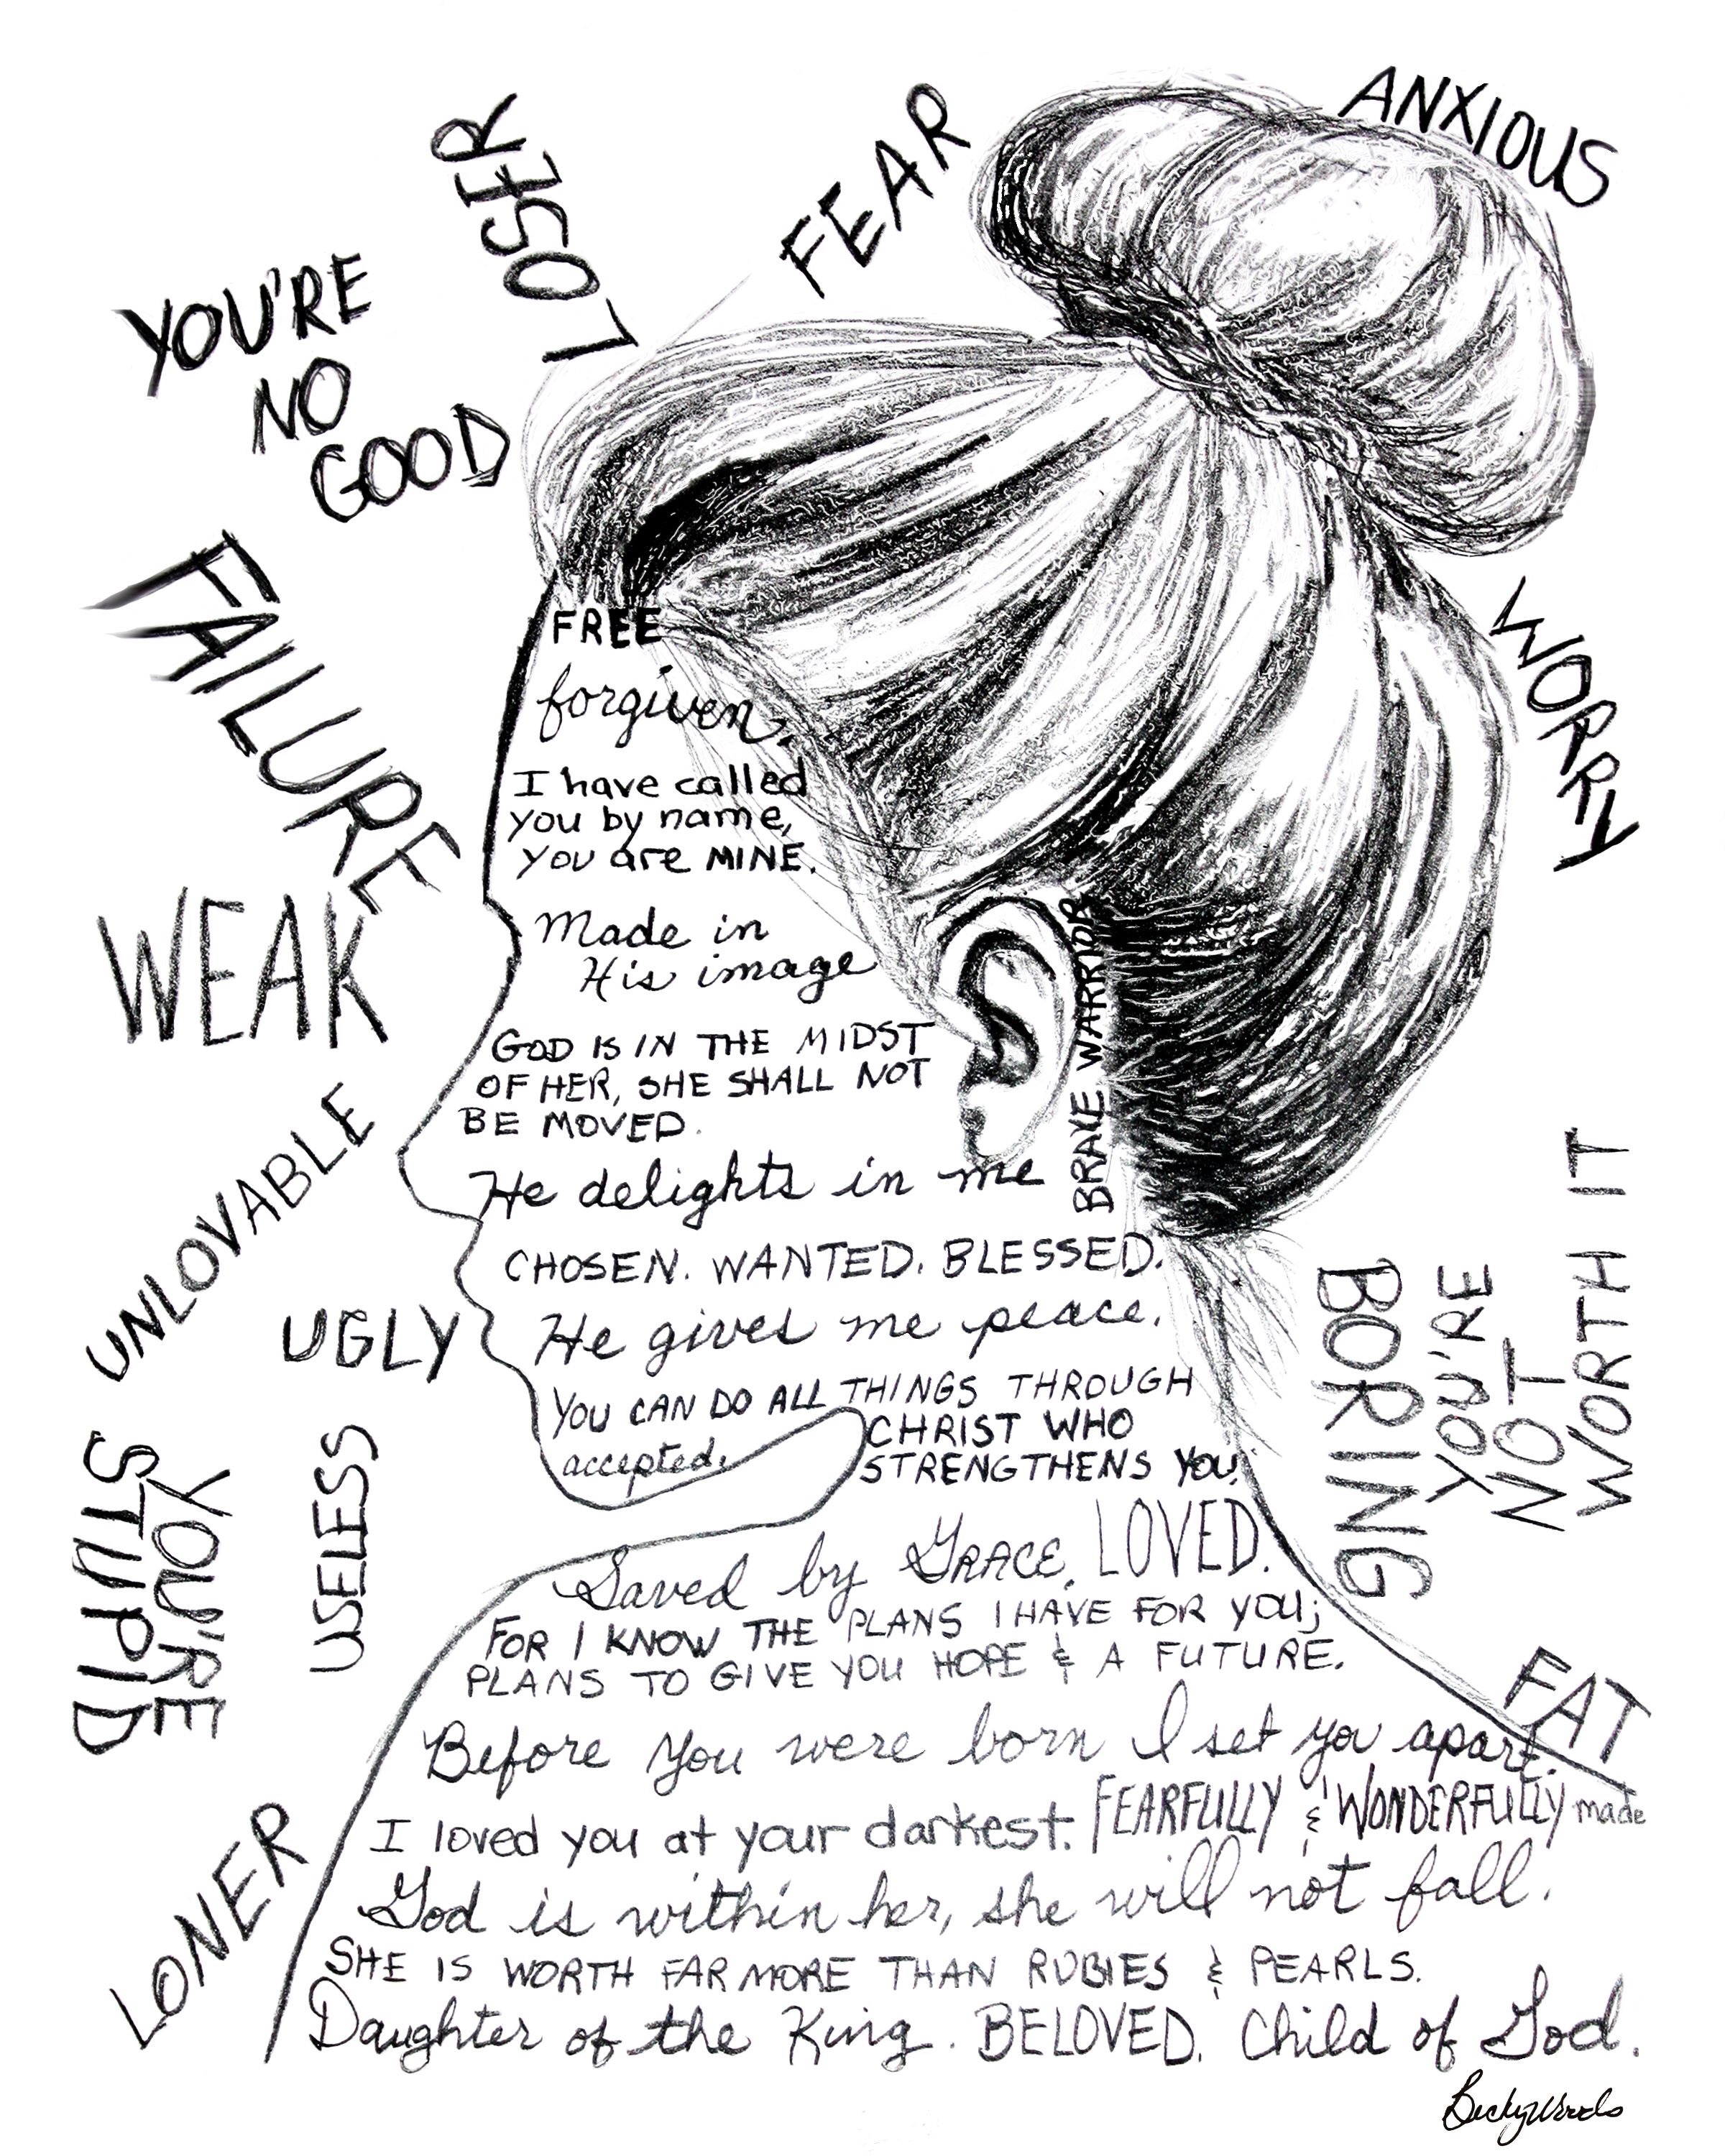 ANXIOUS
FEAR
LOSER
YOU'RE
NO
GOOD
FAILURE
WORRY
WEAK
UNLOVABLE
UGLY
USELESS
YOU'RE
STUPID
LONER
BORING
YOU'RE
NOT
WORTH IT
FAT
FREE
forgiven.
I have called
you by name,
you are MINE.
Made in
His image
GOD IS IN THE MIDST
OF HER, SHE SHALL NOT
BE MOVED.
BRAVE WARRIOR
He delights in me
CHOSEN. WANTED. BLESSED.
He gives me peace.
YOU CAN DO ALL THINGS THROUGH
CHRIST WHO
STRENGTHENS YOU.
accepted.
Saved by GRACE. LOVED.
FOR I KNOW THE PLANS I HAVE FOR YOU;
PLANS TO GIVE YOU HOPE & A FUTURE.
Before you were born I set you apart.
I loved you at your darkest. FEARFULLY & WONDERFULLY made
God is within her, she will not fall.
SHE IS WORTH FAR MORE THAN RUBIES & PEARLS.
Daughter of the King. BELOVED. Child of God.
BeckyWoods